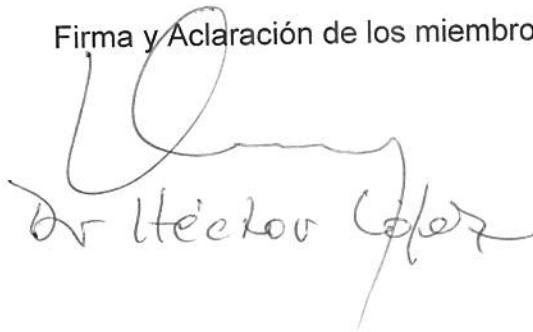 Firma y Aclaración de los miembro
Dr Héctor López